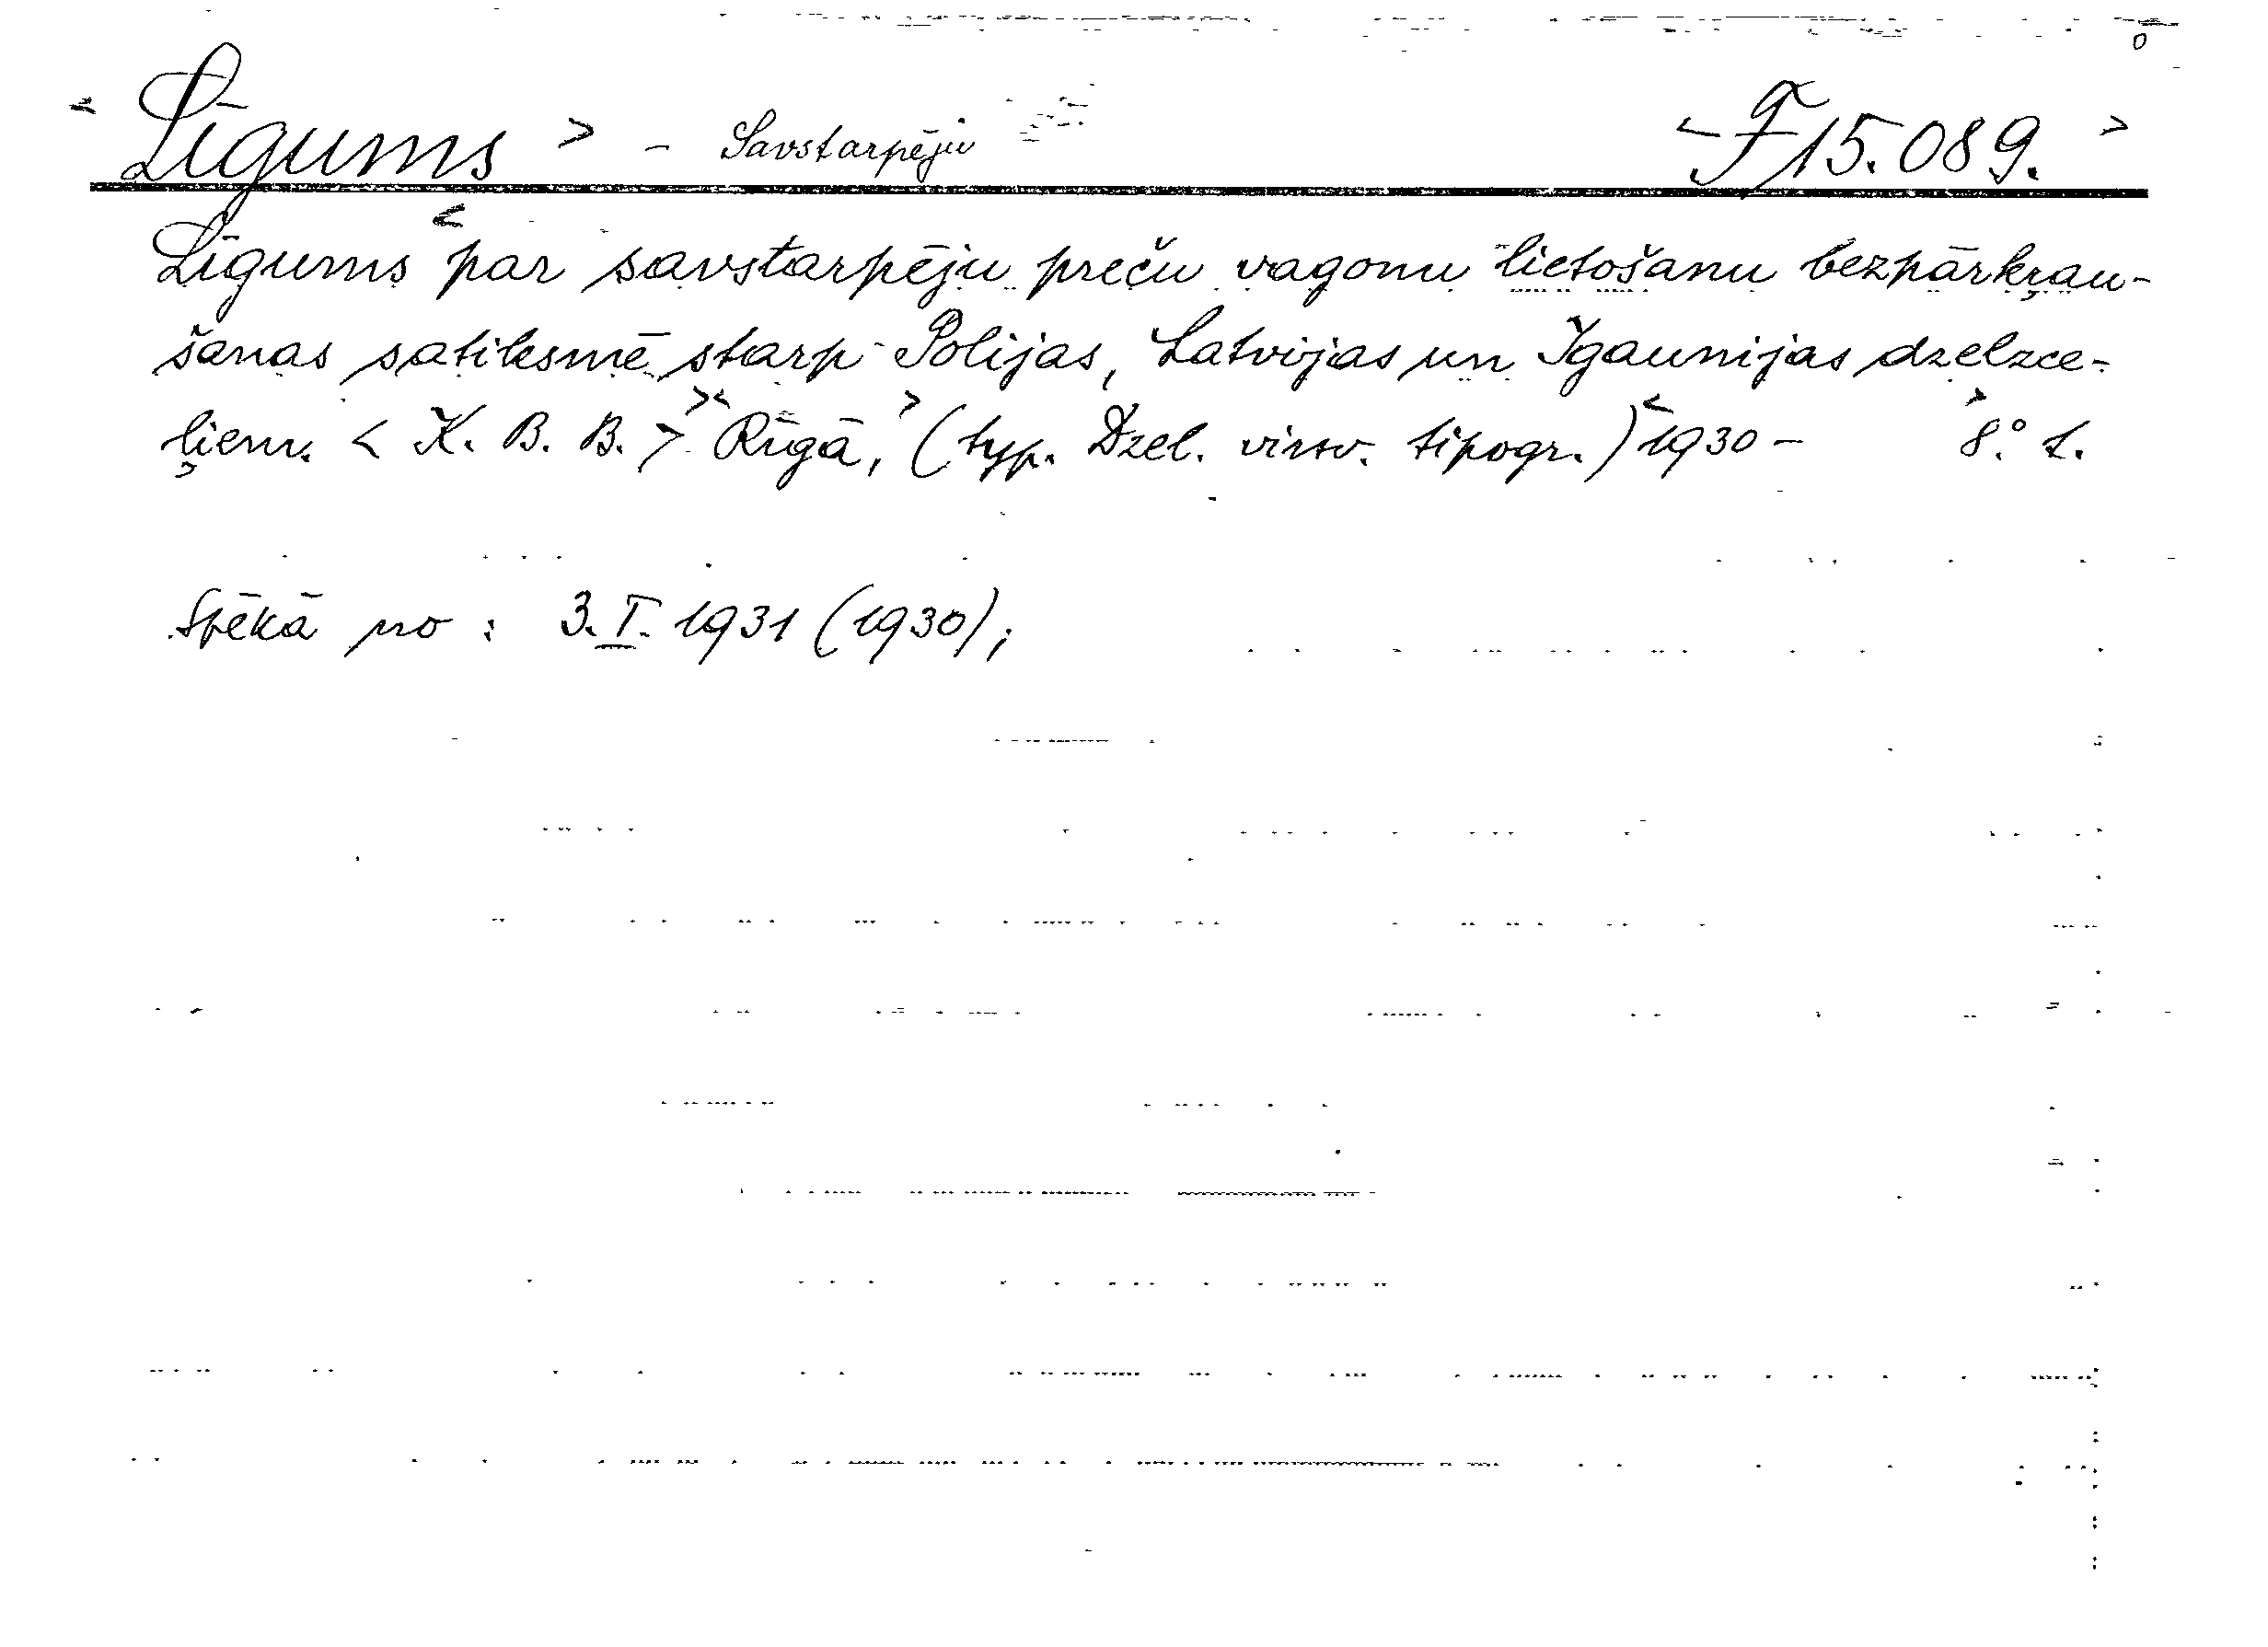 < Līgums > - Savstarpēju < F 15.089. >
Līgums < par savstarpēju preču vagonu lietošanu bezpārkŗau-
šanas satiksmē starp Polijas, Latvijas un Igaunijas dzelzce-
ļiem. < K. B. B. > > < Rīgā, > (typ. Dzel. virsv. tipogr.) < 1930 - > 8.° L.
Spēkā no : 3. I. 1931 (1930);